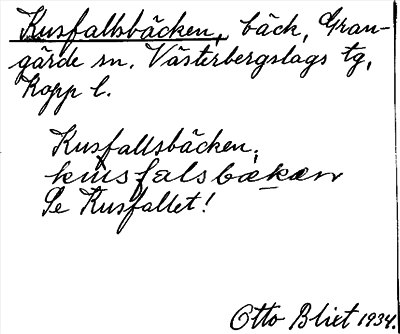 Kusfallsbäcken, bäck, Gran-
gärde sn. Västerbergslags tg,
Kopp l.
Kusfallsbäcken,
kŭsfalsbækæn
Se Kusfallet!
Otto Blixt 1934.